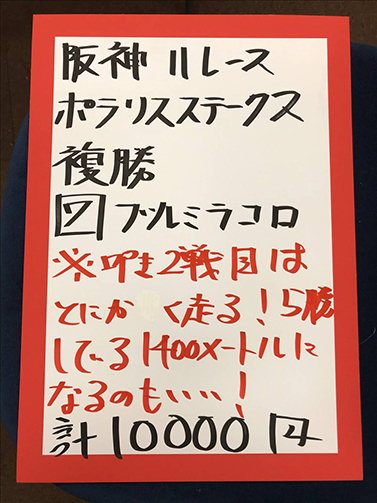 阪神11レース
ポラリスステークス
複勝
⑦ブルミラコロ
※叩き2戦目は
とにかく走る!5勝
している1400メートルに
なるのもいい!
計10000円